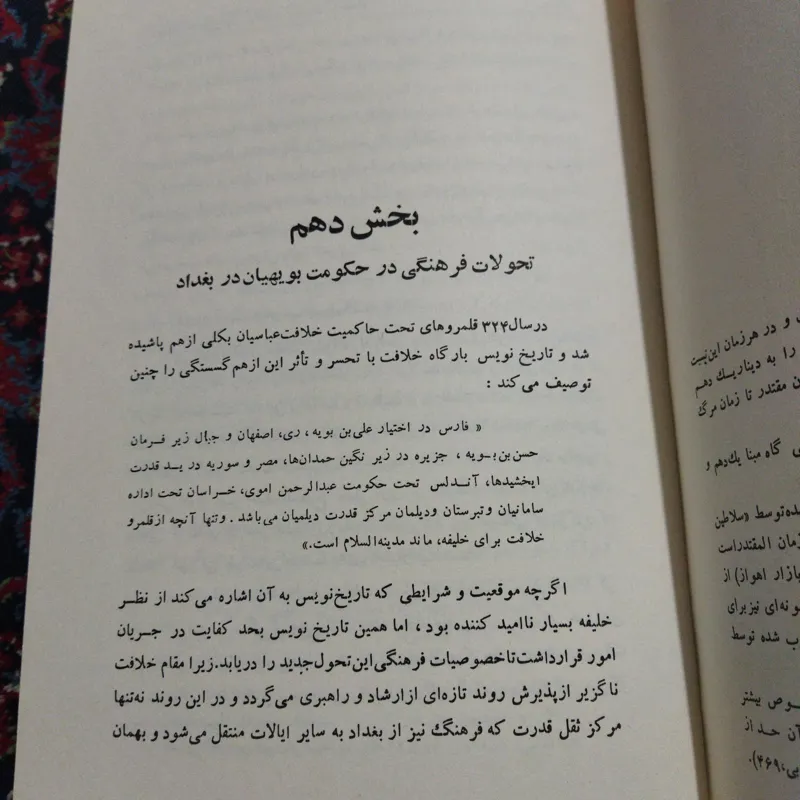 بخش دهم
تحولات فرهنگی در حکومت بویهیان در بغداد
درسال ۳۲۴ قلمروهای تحت حاکمیت خلافت‌عباسیان بکلی ازهم پاشیده
شد و تاریخ نویس بارگاه خلافت با تحسر و تأثر این ازهم‌گسستگی را چنین
توصیف می‌کند :
« فارس در اختیار علی‌بن بویه، ری، اصفهان و جبال زیر فرمان
حسن‌بن‌بویه ، جزیره در زیر نگین حمدان‌ها، مصر و سوریه در ید قدرت
ایخشیدها، آندلس تحت حکومت عبدالرحمن اموی، خراسان تحت اداره
سامانیان وتبرستان ودیلمان مرکز قدرت دیلمیان می‌باشد . وتنها آنچه ازقلمرو
خلافت برای خلیفه، ماند مدینه‌السلام است.»
اگرچه موقعیت و شرایطی که تاریخ‌نویس به آن اشاره می‌کند از نظر
خلیفه بسیار ناامید کننده بود ، اما همین تاریخ نویس بحد کفایت در جریان
امور قرارداشت‌تاخصوصیات فرهنگی‌این‌تحول‌جدید را دریابد.زیرا مقام خلافت
ناگزیر ازپذیرش روند تازه‌ای ازارشاد و راهبری می‌گردد و در این روند نه‌تنها
مرکز ثقل قدرت که فرهنگ نیز از بغداد به سایر ایالات منتقل می‌شود و بهمان
و در هرزمان این‌نسبت
را به دیناریک دهم
مقتدر تا زمان مرگ
گاه مبنا یك‌دهم و
ده‌توسط «سلاطین
زمان المقتدراست
بازار اهواز) از
ونه‌ای نیزبرای
ب شده توسط
وص بیشتر
آن حد از
۴۶۹).